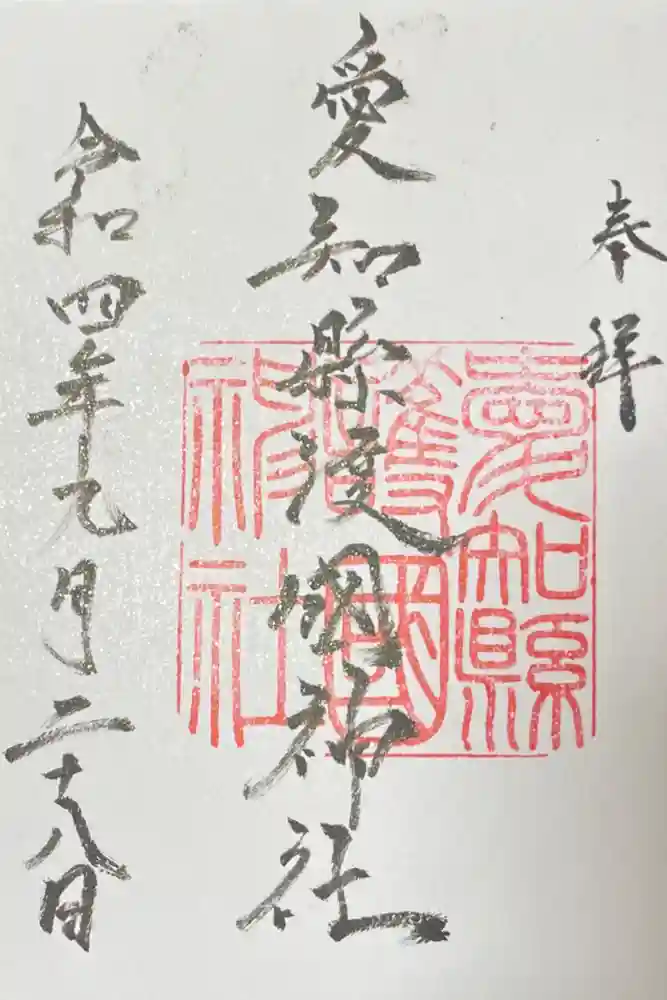 奉拝
愛知縣護國神社
令和四年九月二十八日
愛知縣
護國
神社